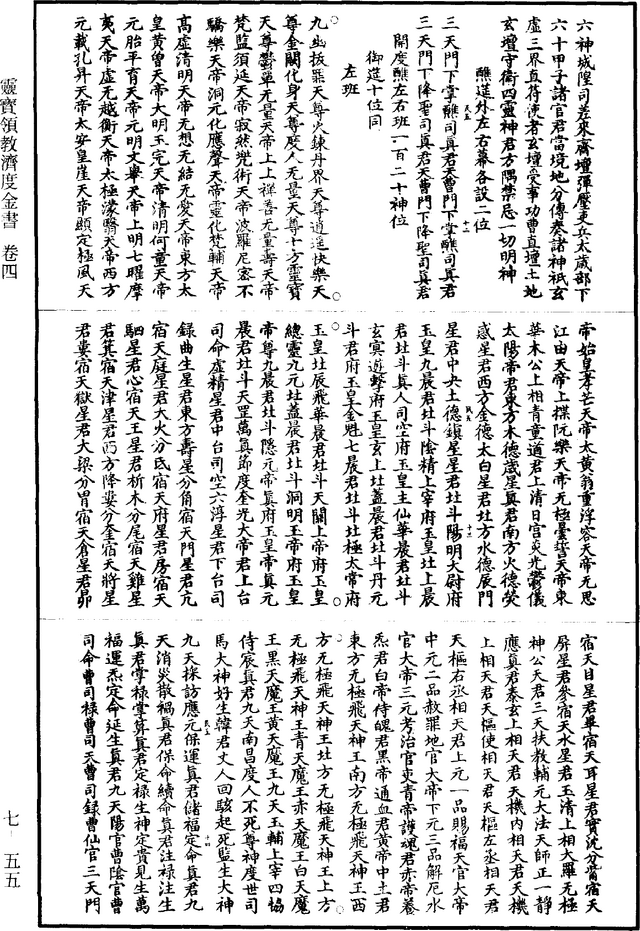 六神城隍司差來齋壇彈壓吏兵太歲部下
六十甲子諸官君當境地分傳奏諸神祇玄
虛三界直符使者玄壇受事功曹直壇土地
玄壇守衛四靈神君方隅禁忌一切明神
醮筵外左右幕各設二位
三天門下掌醮司真君天曹門下掌醮司真君
三天門下降聖司真君天曹門下降聖司真君
開度醮左右班一百二十神位
御筵十位同
左班
九幽拔罪天尊火鍊丹界天尊逍遥快樂天
尊金闕化身天尊度人无量天尊十方靈寶
天尊鬱單无量天帝上上禪善无量壽天帝
梵監須延天帝寂然兜術天帝波羅尼密不
驕樂天帝洞元化應聲天帝靈化梵輔天帝
高虛清明天帝无想无結无愛天帝東方太
皇黃曾天帝太明玉完天帝清明何童天帝
元胎平育天帝元明文舉天帝上明七曜摩
夷天帝虛无越衡天帝太極濛翳天帝西方
元載孔昇天帝太安皇崖天帝顯定極風天
帝始皇孝芒天帝太黃翁重浮容天帝无思
江由天帝上揲阮樂天帝无極曇誓天帝東
華木公上相青童道君上清日宮炎光鬱儀
太陽帝君東方木德歲星真君南方火德熒
惑星君西方金德太白星君北方水德辰門
星君中央土德鎮星星君北斗陽明大尉府
玉皇九晨君北斗陰精上宰府玉皇北上晨
君北斗真人司空府玉皇主仙華晨君北斗
玄冥遊擊府玉皇玄上北蓋晨君北斗丹元
斗君府玉皇金魁七晨君北斗北極太常府
玉皇北辰飛華晨君北斗天關上帝府玉皇
總靈九元北蓋晨君北斗洞明玉帝府玉皇
帝尊九晨君北斗隱元帝真府玉皇帝真元
晨君北斗天罡萬真節度奎光大帝君上台
司命虛精星君中台司空六淳星君下台司
錄曲生星君東方壽星分角宿天門星君亢
宿天庭星君大火分氐宿天府星君房宿天
駟星君心宿天王星君析木分尾宿天雞星
君箕宿天津星君西方降婁分奎宿天將星
君婁宿天獄星君大梁分胃宿天倉星君昴
宿天日星君畢宿天耳星君實沈分觜宿天
屏星君參宿天水星君玉清上相大羅无極
神公天君三天扶教輔元大法天師正一靜
應真君泰玄上相天君天機內相天君天機
上相天君天樞使相天君天樞左丞相天君
天樞右丞相天君上元一品賜福天官大帝
中元二品赦罪地官大帝下元三品解厄水
官大帝三元考治官吏青帝護魂君赤帝養
炁君白帝侍魄君黑帝通血君黃帝中主君
東方无極飛天神王南方无極飛天神王西
方无極飛天神王北方无極飛天神王上方
无極飛天神王青天魔王赤天魔王白天魔
王黑天魔王黃天魔王九天玉輔上宰四協
侍辰真君九天南昌度人不死尊神度世司
馬大神好生韓君丈人回駭起死監生大神
九天採訪應元保運真君儲福定命真君九
天消災散禍真君保命續命真君注祿注生
真君掌祿掌算真君定祿生神定貴見生萬
福運炁定命延生真君九天陽官曹陰官曹
司命曹司祿曹司天曹司錄曹仙官三天門
靈寶領教濟度金書 卷四
七－五五